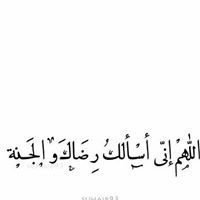 اللّٰهُمَّ إِنِّي أَسْأَلُكَ رِضَاكَ وَالجَنَّة